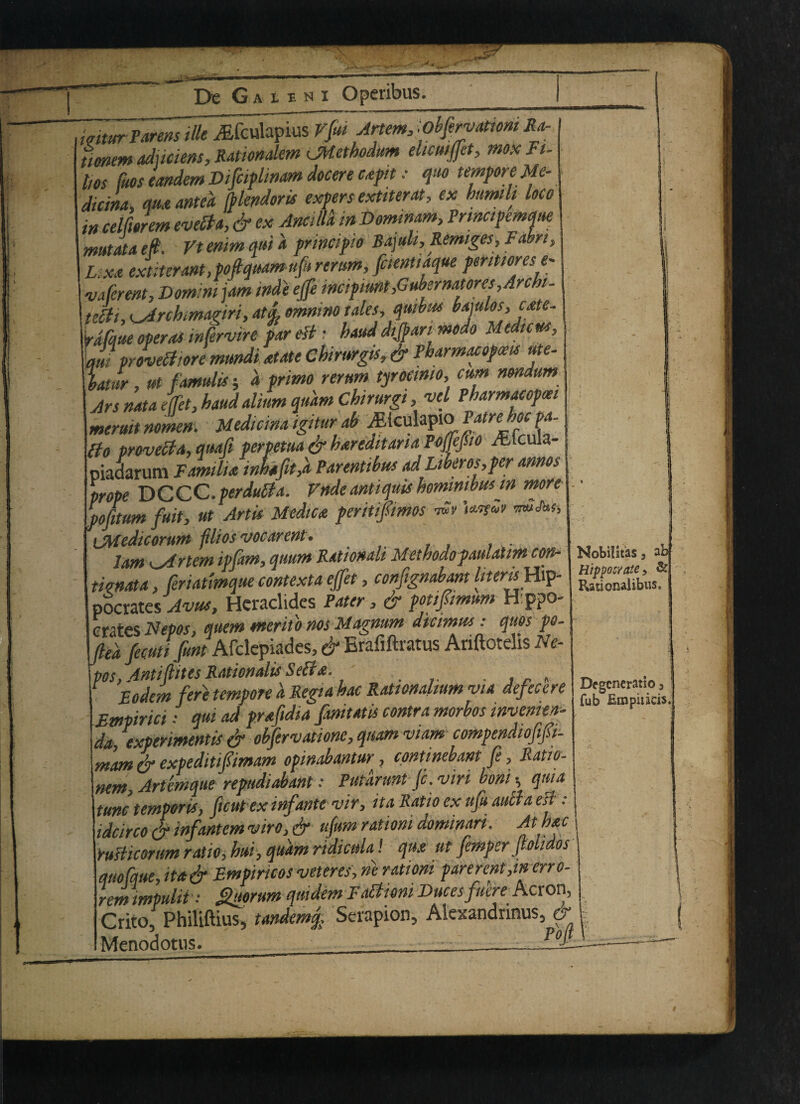 De GALENI Operibus.
igitur Parens ille Æsculapius Vsui Artem, Observationi Ra-
tionem adjiciens, Rationalem Methodum elicuisset, mox Fi-
lios suos eandem Disciplinam docere cæpit: quo tempore Me-
dicina, quæ anteà splendoris expers extiterat, ex humili loco
in celsiorem evecta, & ex Ancillâ in Dominam, Principemque
mutata est. Vt enim qui à principio Bajuli, Remiges, Fabri,
Lixæ extiterant, postquam usu rerum, scientiâque peritiores e-
vaserent, Domini jam inde esse incipiunt, Gubernatores, Archi-
tecti, Archimagiri, atq; omnino tales, quibus bajulos, cæte-
rásque operas inservire par est: haud dispari modo Medicus,
qui provectiore mundi ætate Chirurgis, & Pharmacopœis ute-
batur, ut famulis; à primo rerum tyrocinio, cùm nondum
Ars nata esset, haud alium quàm Chirurgi, vel Pharmacopœi
meruit nomen. Medicina igitur ab Æsculapio Patre hoc pa-
cto provecta, quasi perpetua & hæreditaria Possessio Æscula-
piadarum Familiæ inhæsit, à Parentibus ad Liberos, per annos
prope DCCC. perducta. Vnde antiquis hominibus in more
positum fuit, ut Artis Medicæ peritissimos τῶν ἰατρῶν παῖδας,
Medicorum filios vocarent.
Iam Artem ipsam, quum Rationali Methodo paulatim con-
tignata, seriatimque contexta esset, consignabant literis Hip-
pocrates Avus, Heraclides Pater, & potissimùm Hippo-
crates Nepos, quem meritò nos Magnum dicimus: quos po-
steà secuti sunt Asclepiades, & Erasistratus Aristotelis Ne-
pos, Antistites Rationalis Sectæ.
Eodem ferè tempore à Regia hac Rationalium via defecère
Empirici: qui ad præsidia sanitatis contra morbos invenien-
da, experimentis & observatione, quam viam compendiosissi-
mam & expeditissimam opinabantur, continebant se, Ratio-
nem, Artémque repudiabant: Putârunt sc. viri boni; quia
tunc temporis, sicut ex infante vir, ita Ratio ex usu aucta est:
idcirco & infantem viro, & usum rationi dominari. At hæc
rusticorum ratio, hui, quàm ridicula! quæ ut semper stolidos
quosque, ita & Empiricos veteres, ne rationi parerent, in erro-
rem impulit: Quorum quidem Factioni Duces fuêre Acron,
Crito, Philistius, tandemq; Serapion, Alexandrinus, &
Menodotus.
Post
Nobilitas, ab
Hippocrate, &
Rationalibus.
Degeneratio,
sub Empiricis.